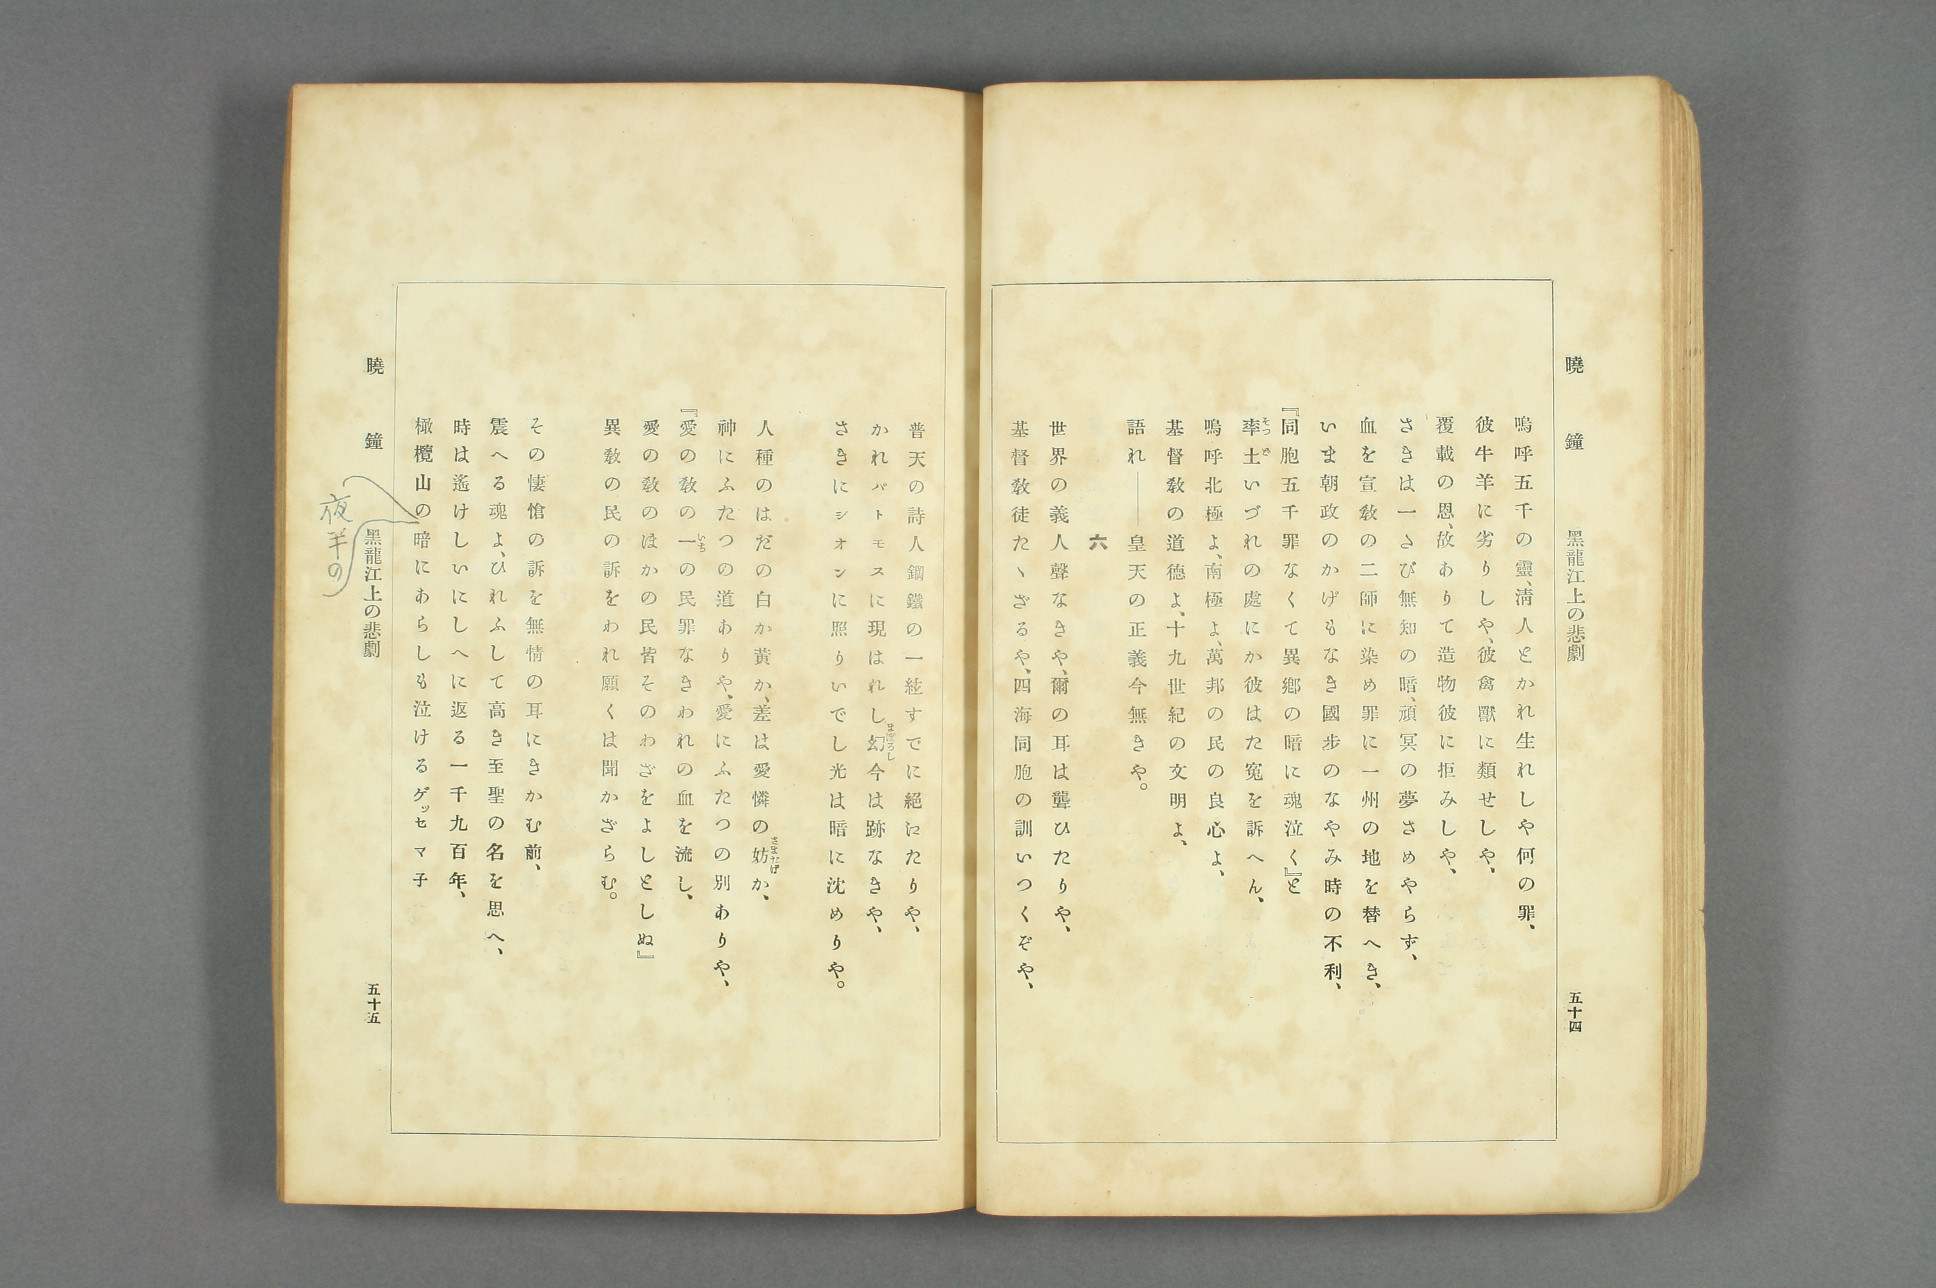 曉鐘
黑龍江上の悲劇
五十四
嗚呼五千の靈、淸人とかれ生れしや何の罪、
彼牛羊に劣りしや、彼禽獸に類せしや、
覆載の恩、故ありて造物彼に拒みしや、
さきは一さび無知の暗、頑冥の夢さめやらず、
血を宣敎の二師に染め罪に一州の地を替へき、
いま朝政のかげもなき國步のなやみ時の不利、
『同胞五千罪なくて異鄕の暗に魂泣く』と
率土いづれの處にか彼はた寃を訴へん、
そつど
嗚呼北極よ、南極よ、萬邦の民の良心よ、
基督敎の道德よ、十九世紀の文明よ、
語れ――皇天の正義今無きや。
六
世界の義人聲なきや、爾の耳は聾ひたりや、
基督敎徒たゝざるや、四海同胞の訓いつくぞや、
普天の詩人鋼鐵の一絃すでに絕えたりや、
かれパトモスに現はれし幻今は跡なきや、
まぼろし
さきにシオンに照りいでし光は暗に沈めりや。
人種のはだの白か黃か、差は愛憐の妨か、
さまたげ
神にふたつの道ありや、愛にふたつの別ありや、
『愛の敎の一の民罪なきわれの血を流し、
いち
愛の敎のほかの民皆そのわざをよしとしぬ』
異敎の民の訴をわれ願くは聞かざらむ。
その悽愴の訴を無情の耳にきかむ前、
震へる魂よ、ひれふして高き至聖の名を思へ、
時は遙けしいにしへに返る一千九百年、
橄欖山の暗にあらしも泣けるゲッセマ子
夜半の
曉鐘
黑龍江上の悲劇
五十五